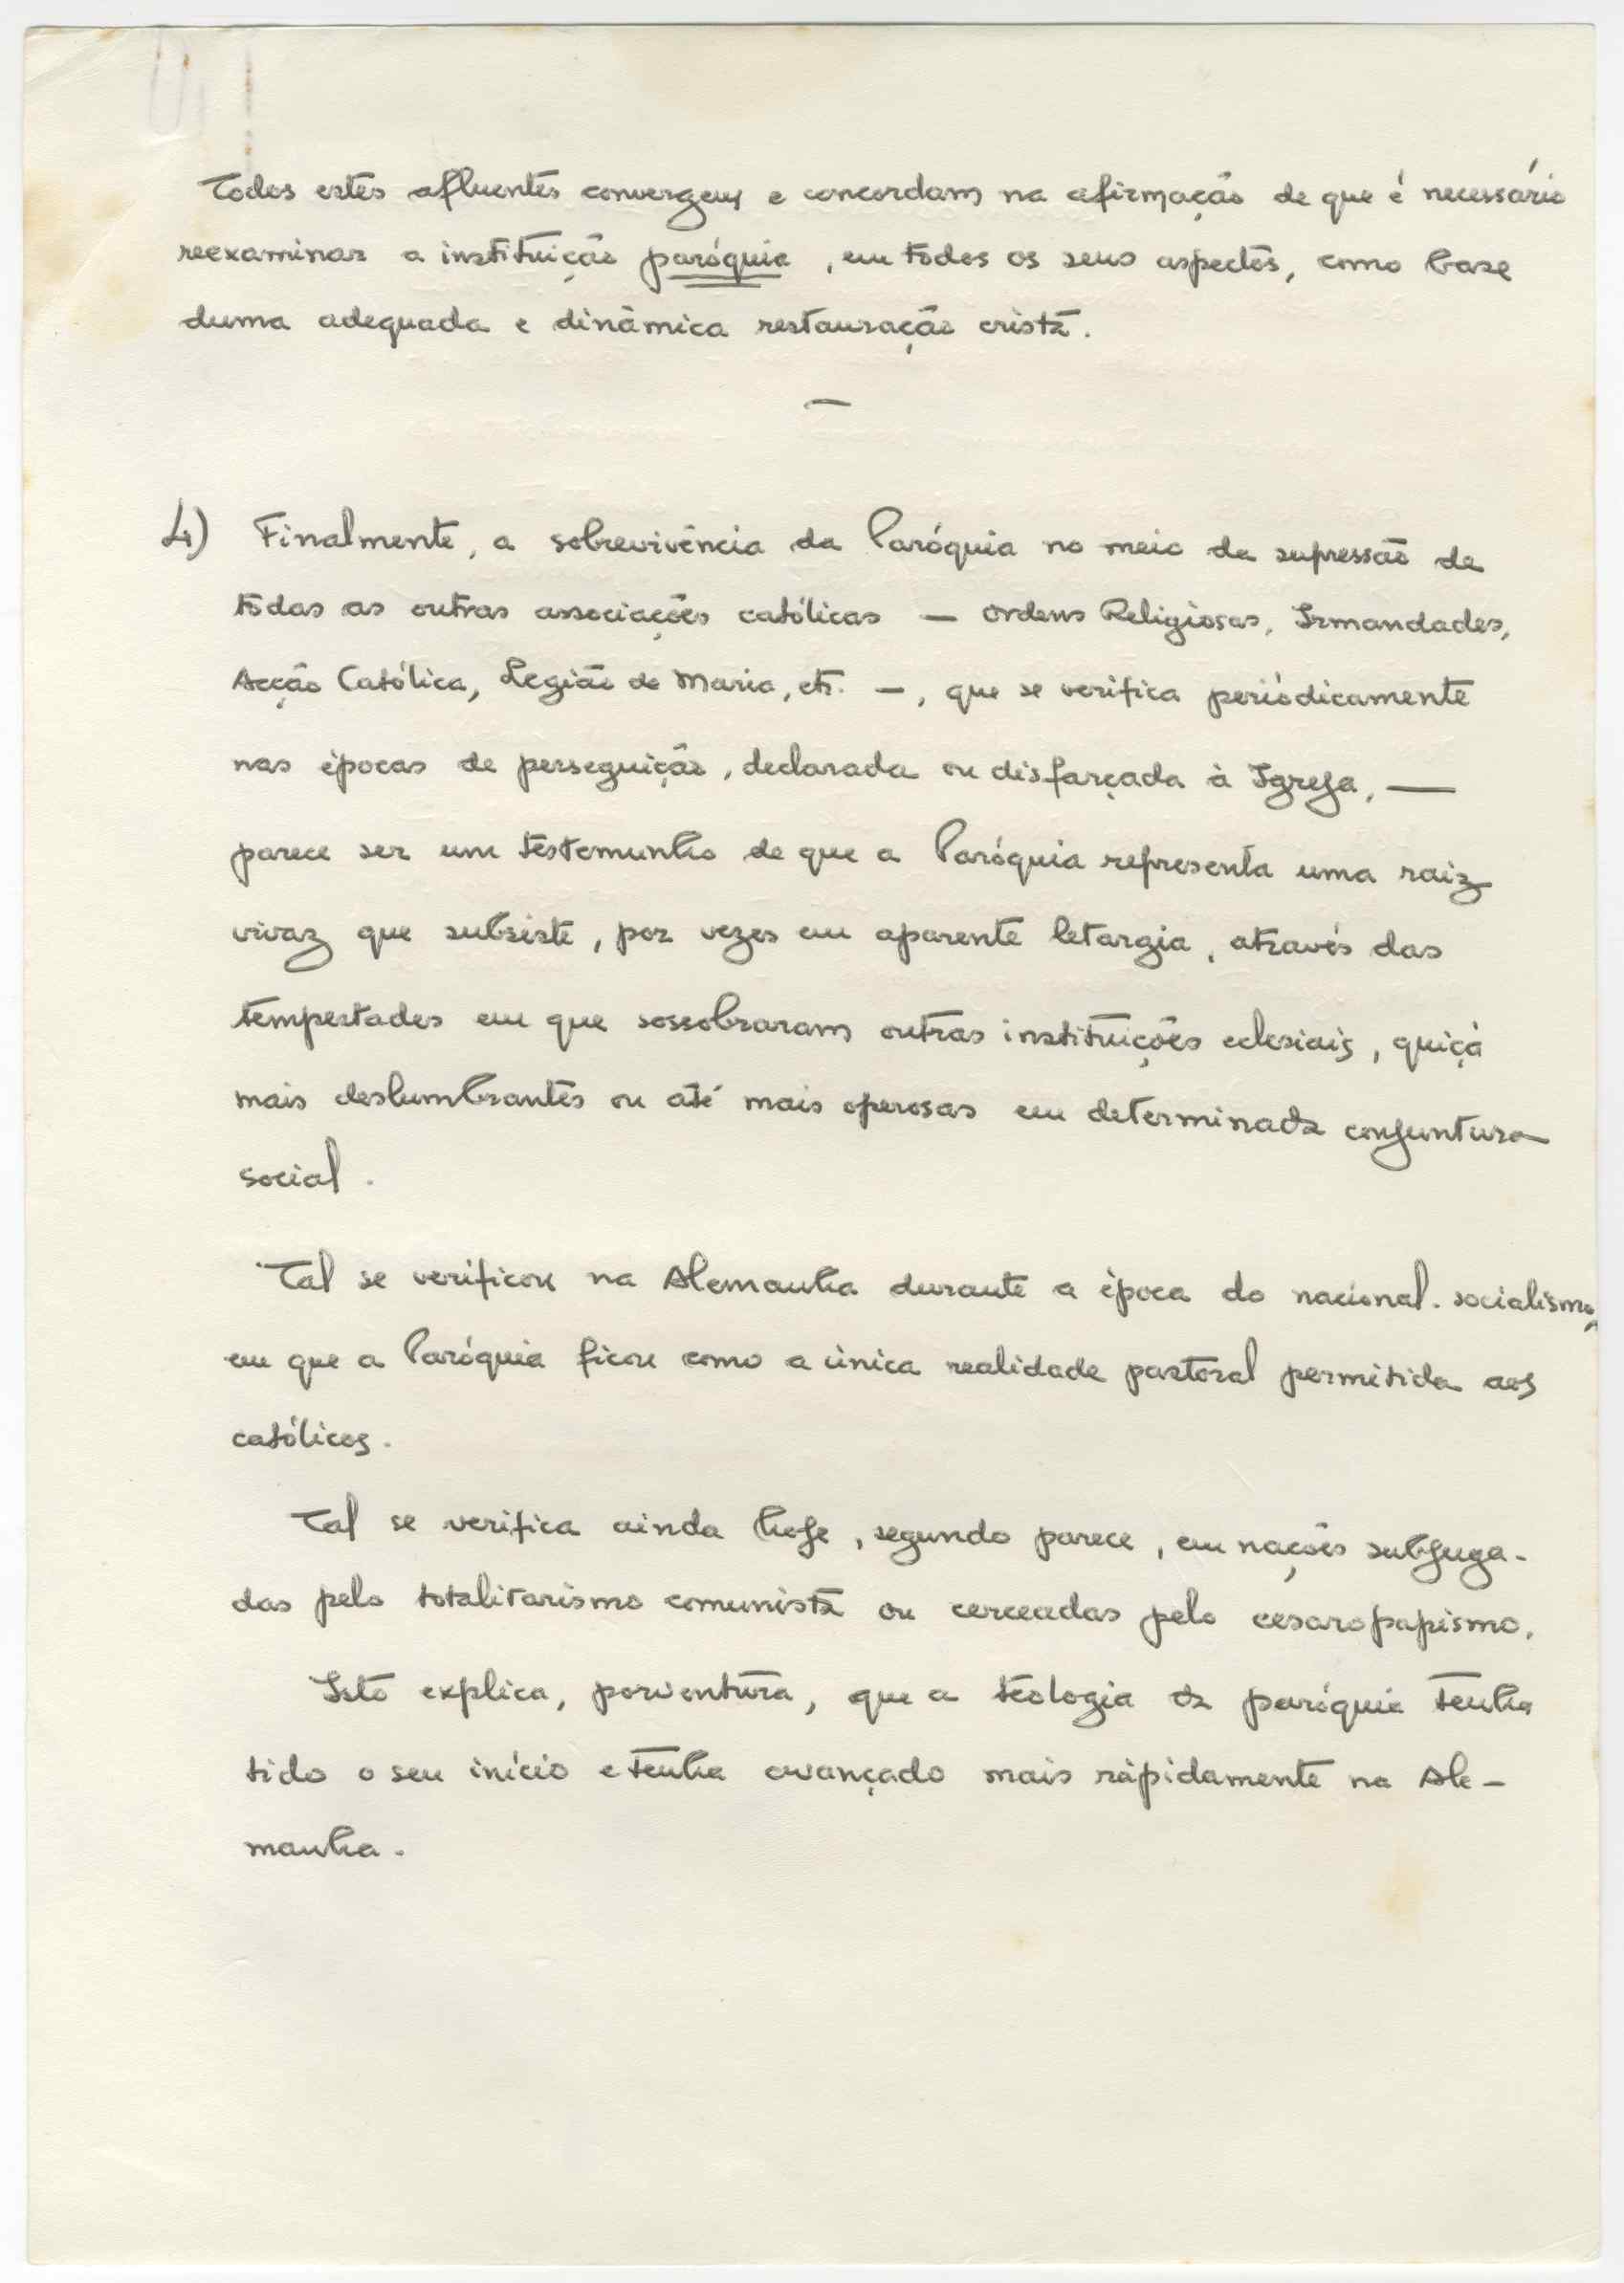 Todos estes afluentes convergem e concordam na afirmação de que é necessário
reexaminar a instituição paróquia, em todos os seus aspectos, como base
duma adequada e dinâmica restauração cristã.
—
4) Finalmente, a sobrevivência da Paróquia no meio da supressão de
todas as outras associações católicas — Ordens Religiosas, Irmandades,
Acção Católica, Legião de Maria, etc. —, que se verifica periòdicamente
nas épocas de perseguição, declarada ou disfarçada à Igreja, —
parece ser um testemunho de que a Paróquia representa uma raiz
vivaz que subsiste, por vezes em aparente letargia, através das
tempestades em que sossobraram outras instituições eclesiais, quiçá
mais deslumbrantes ou até mais operosas em determinada conjuntura
social.
Tal se verificou na Alemanha durante a época do nacional-socialismo,
em que a Paróquia ficou como a única realidade pastoral permitida aos
católicos.
Tal se verifica ainda hoje, segundo parece, em nações subjuga-
das pelo totalitarismo comunista ou cerceadas pelo cesaropapismo.
Isto explica, porventura, que a teologia da paróquia tenha
tido o seu início e tenha avançado mais ràpidamente na Ale-
manha.